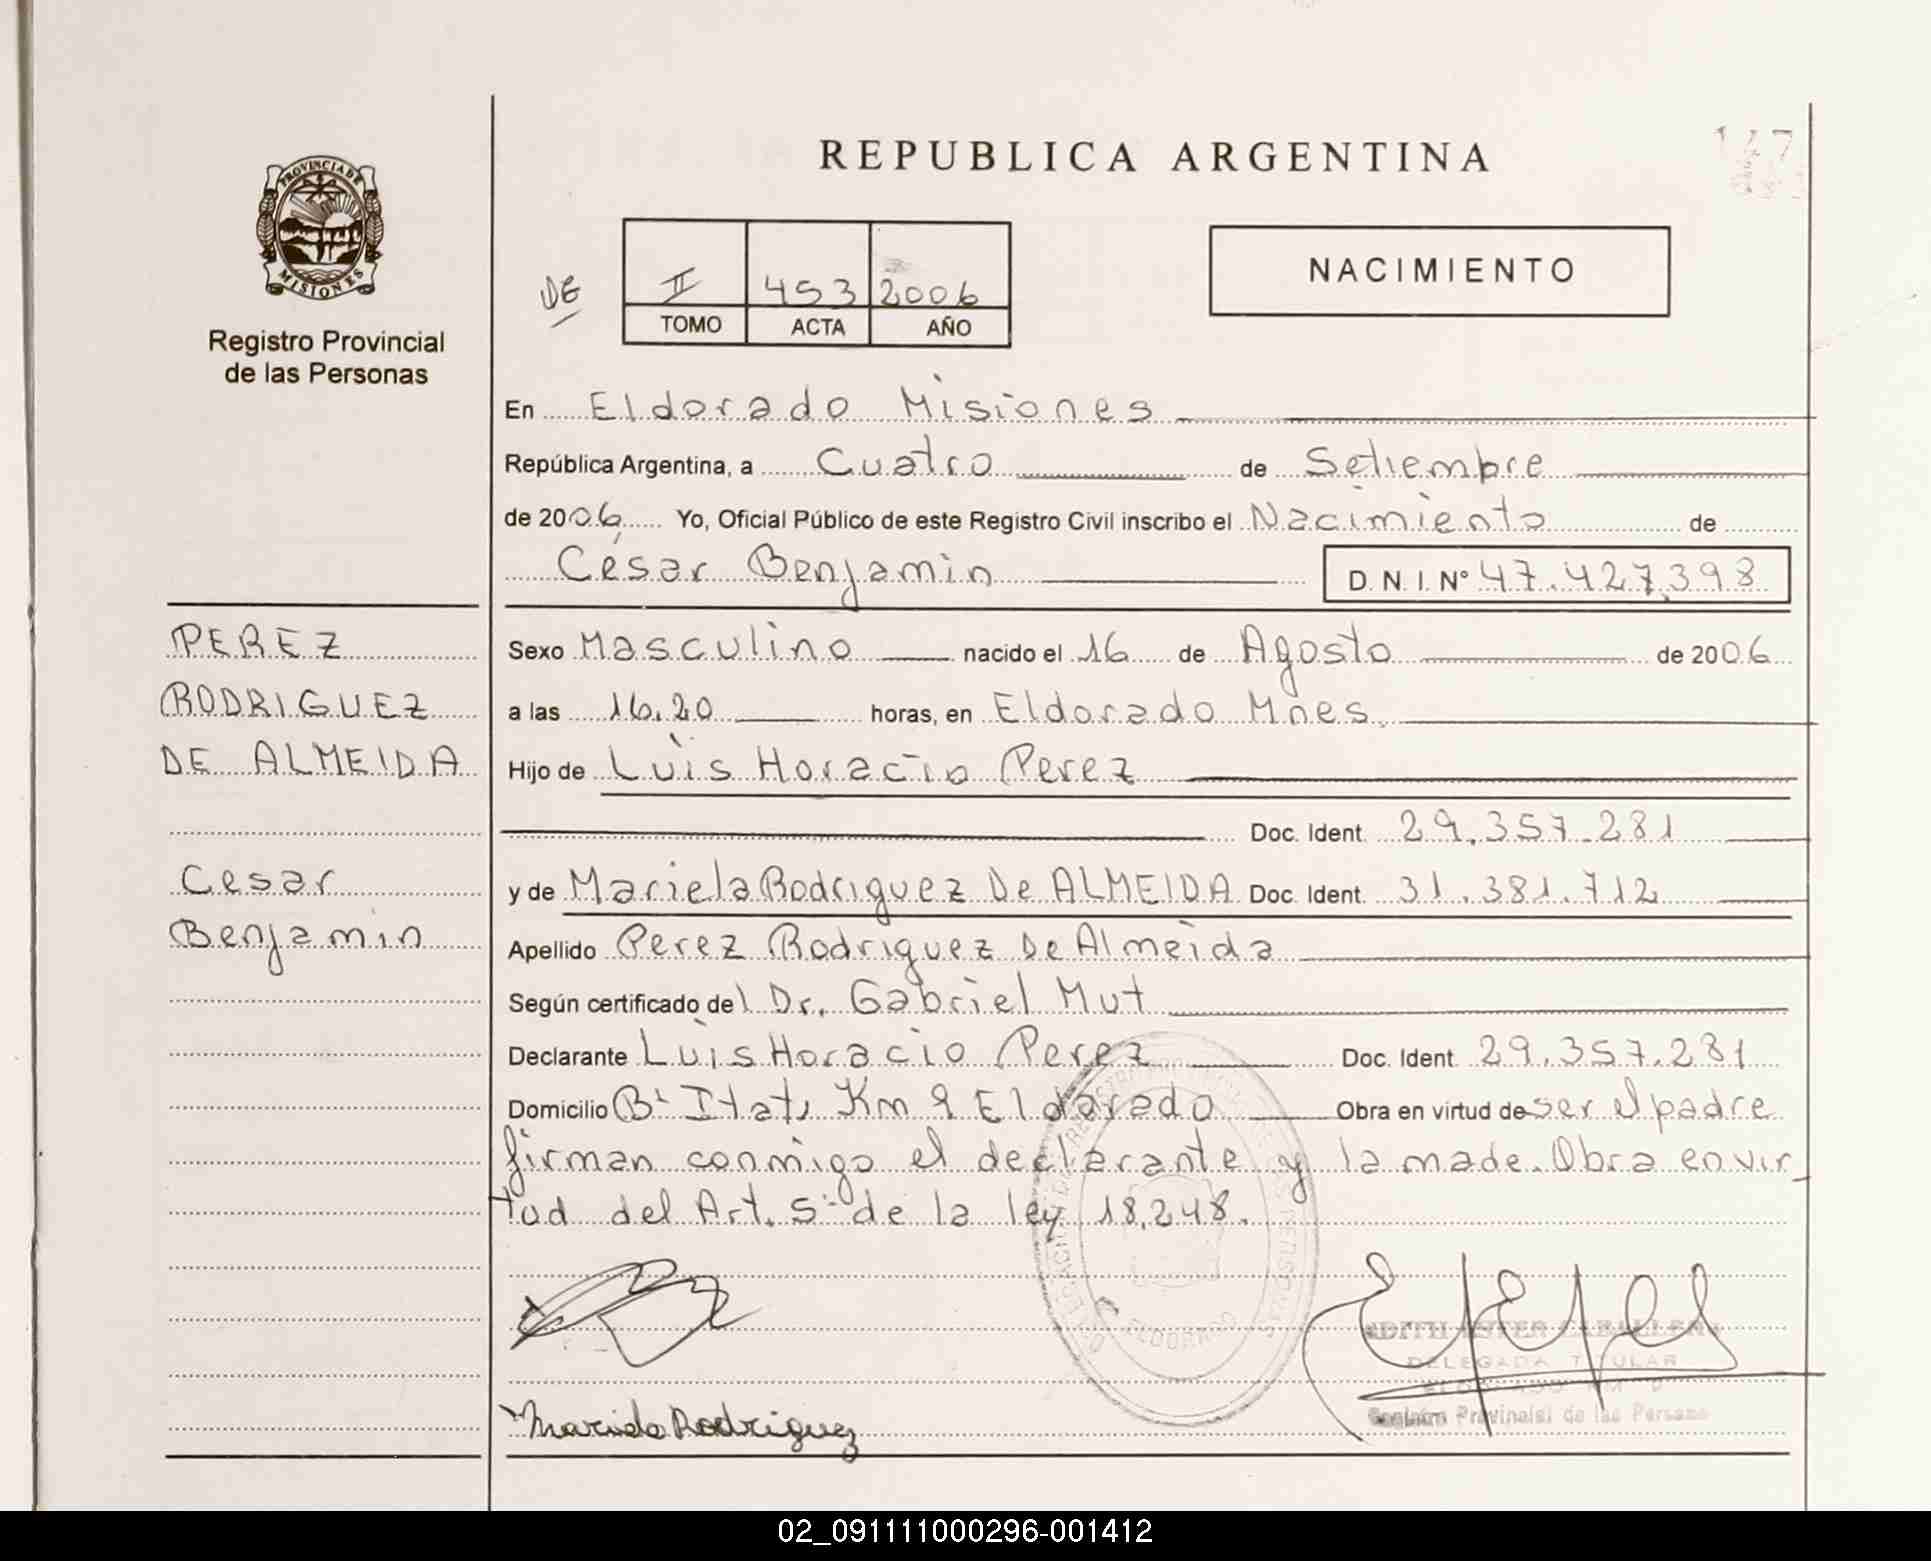 REPUBLICA ARGENTINA
147
PROVINCIA DE MISIONES
Registro Provincial
de las Personas
DE
II 453 2006
TOMO ACTA AÑO
NACIMIENTO
En Eldorado Misiones
República Argentina, a Cuatro de Setiembre
de 2006 Yo, Oficial Público de este Registro Civil inscribo el Nacimiento de
César Benjamin D. N. I. N° 47.427.398
PEREZ
RODRIGUEZ
DE ALMEIDA
Cesar
Benjamin
Sexo Masculino nacido el 16 de Agosto de 2006
a las 16.20 horas, en Eldorado Mnes.
Hijo de Luis Horacio Perez
Doc. Ident. 29.357.281
y de Mariela Rodriguez De ALMEIDA Doc. Ident. 31.381.712
Apellido Perez Rodriguez De Almeida
Según certificado del Dr. Gabriel Mut
Declarante Luis Horacio Perez Doc. Ident. 29.357.281
Domicilio B° Itati Km 9 Eldorado Obra en virtud de ser el padre
firman conmigo el declarante y la made. Obra en vir
tud del Art. 5° de la ley 18.248.
ELDORADO
DELEGADA TITULAR
Mariela Rodriguez
02_091111000296-001412